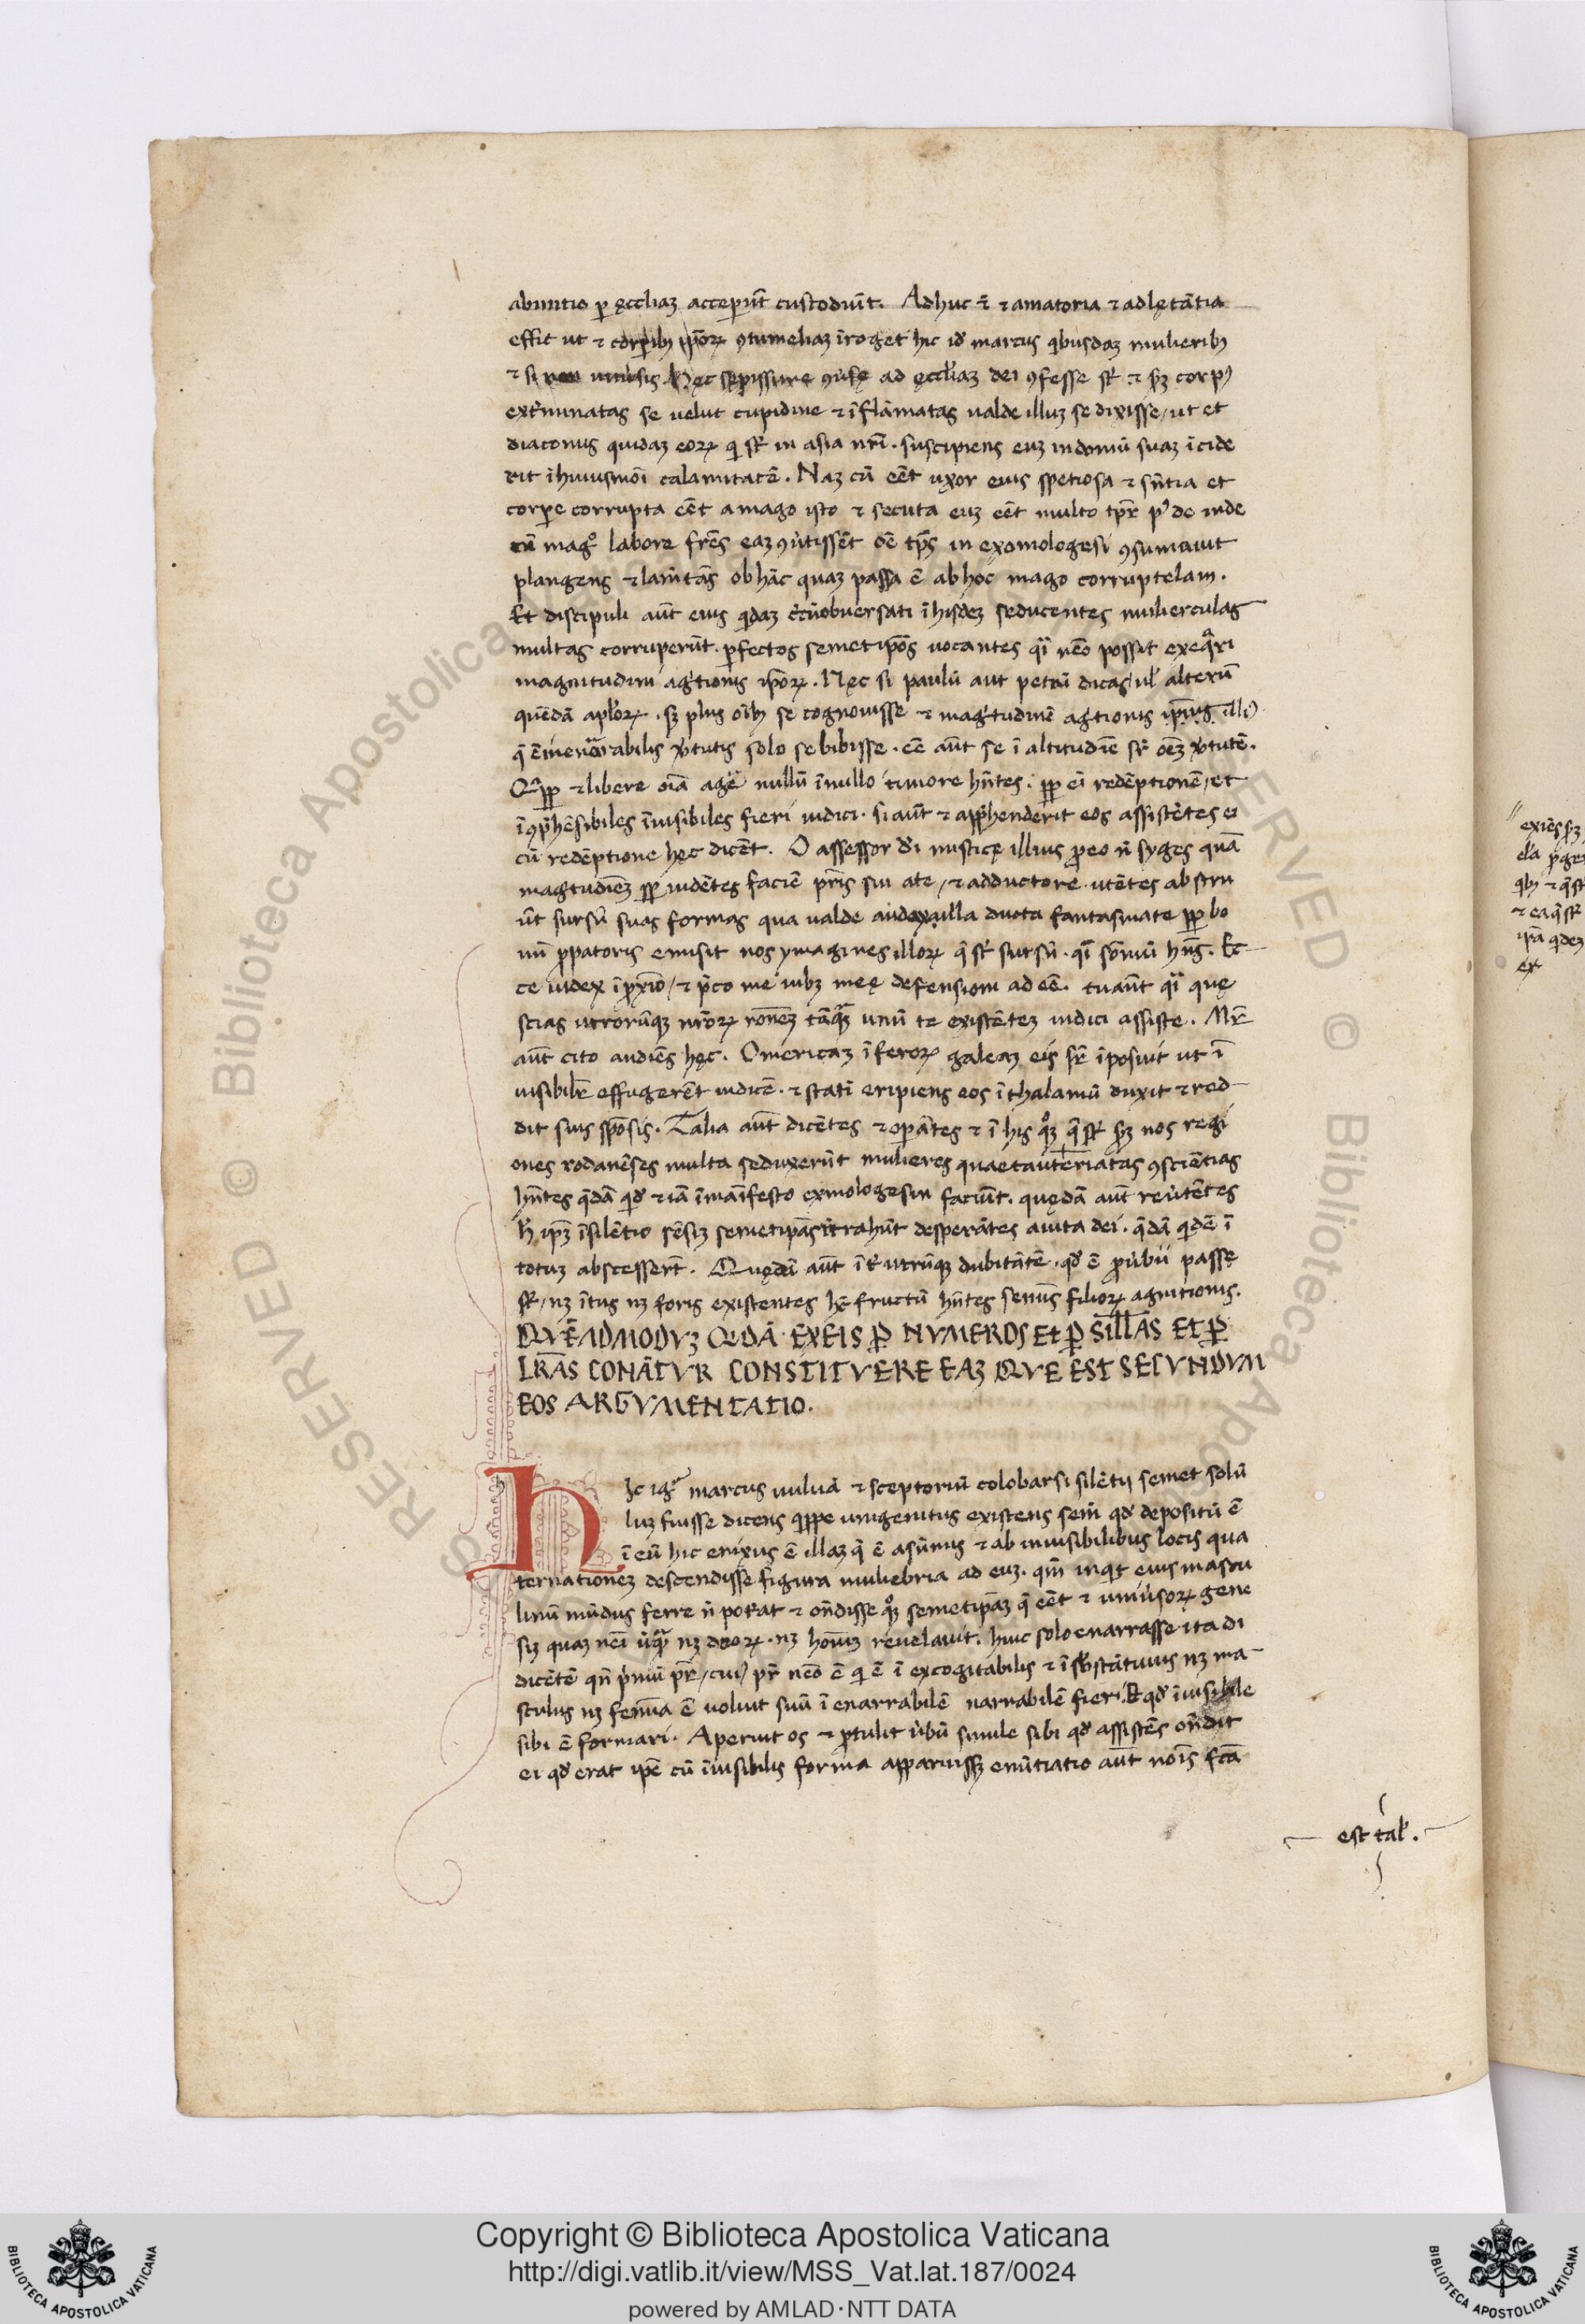 abuntio ꝑ ęccliaꝫ acceper̄t custodiūt. Adhuc ē ⁊ amatoria ⁊ adlętātia
effit ut ⁊ corꝑibꝰ ip̄oꝝ ꝯtumeliaꝫ īroget hic id marcus qbusdaꝫ mulieribꝰ
⁊ si non uniūsis. Hęc sępissime ꝯūsę ad ęccl̄iaꝫ dei ꝯfesse st̄ ⁊ ẜꝫ corpꝰ
exr̄minatas se velut cupidine ⁊ īflāmatas valde illuꝫ se dixisse, ut et
diaconus quidaꝫ eoꝝ q st̄ in asia nr̄i. suscipiens euꝫ in domū suaꝫ īcide
rit ī huiusmōi calamitatē. Naꝫ cū eēt uxor eius spetiosa ⁊ sn̄tia et
corpe corrupta eēt a mago isto ⁊ secuta euꝫ eēt multo tp̄r pꝰ de inde
cū magº labore fr̄es eaꝫ ꝯūtissēt oē tp̄s in exomologesi ꝯsumauit
plangens ⁊ lam̄tās ob hāc quaꝫ passa ē ab hoc mago corruptelam.
Et discipuli aūt eius qdaꝫ circūobuersati ī hisdeꝫ seducentes mulierculas
multas corruperūt. ꝑfectos semetip̄os vocantes qͣi nēo possit exeqͣri
magnitudini agtionis ip̄oꝝ. Nęc si paulū aut petrū dicas, ul̄ alterū
quēdā apl̄oꝝ. sꝫ plus oībꝰ se cognouisse ⁊ magtudinē agtionis ip̄ius illiꝰ
q̄ ē inenarrabilis v̄tutis solo se bibisse. eē aūt se ī altitudīe st̄ oēꝫ v̄tutē.
Qͣꝓp̄ ⁊ libere oīa agē nullū ī nullo timore hn̄tes. ꝓp̄ eī redēptionē, et
īꝯp̄hēsibiles īuisibiles fieri iudici. si aūt ⁊ app̄henderit eos assistētes ei
cū redēptione hęc dicēt. O assessor d̄i misticę illius ꝓ eo n̄ syges quā
magtudīeꝫ sꝑ uidētes faciē pr̄is sui ate, ⁊ adductore utētes abstru
ūt sursū suas formas qua valde audax illa ducta fantasmate ꝓp̄ bo
nū ꝓpatoris emisit nos ymagines illoꝝ q̄ st̄ sursū. qͣi sōniū hn̄s. Ec
ce iudex ī ꝓxīo, ⁊ p̄co me iubꝫ meę defensioni ad eē. tu aūt qͣi quę
scias utrorūqꝫ nr̄oꝝ ronēꝫ tāqͣꝫ unū te existēteꝫ iudici assiste. Mr̄
aūt cito audiēs hęc. Omericaꝫ īferoꝝ galeaꝫ eis sr̄ īposuit ut ī
uisibilr̄ effugerēt iudicē. ⁊ statī eripiens eos ī thalamū duxit ⁊ red
dit suis spōsis. Talia aūt dicētes ⁊ operātes ⁊ ī his qͦꝫ q̄ st̄ ẜꝫ nos regi
ones rodanēses multa seduxerūt mulieres quae cauteriatas ꝯscientias
hn̄tes qdā qd̄ ⁊ iā ī maīfesto exmologesin faciūt. quędā aūt reūtētes
h̄ ip̄ꝫ ī silētio sēsiꝫ semetip̄as r̄trahūt desperātes a uita dei. qdā qdē ī
totuꝫ abscesserūt. Quędā aūt īt̄ utrūqꝫ dubitātē. qd̄ ē ꝓūbii passę
st̄, nꝫ ītus nꝫ foris existentes hc̄ fructū hn̄tes semīs filioꝝ agnitionis.
QVĒADMODVꝫ QEDĀ EX EIS Ꝑ NVMEROS Et Ꝑ SILLĀS Et Ꝑ
LR̄AS CONĀTVR CONSTITVERE EAꝫ QVE EST SECVNDVM
EOS ARGVMENTATIO.
Hc igͬ marcus uuluā ⁊ sceptoriū colobarsi silētij semet solū
luꝫ fuisse dicens qͥppe unigenitus existens sem̄ qd̄ depositū ē
ī eū hic enixus ē illaꝫ q̄ ē a sūmis ⁊ ab inuisibilibus locis qua
ternationeꝫ descendisse figura muliebria ad euꝫ. qm̄ inqt eius mascu
linū mūdus ferre n̄ pot̄at ⁊ on̄disse qͦꝫ semetip̄aꝫ q̄ eēt ⁊ uniūsoꝝ gene
siꝫ quaꝫ nēi ūqͣ nꝫ deoꝝ. nꝫ hoīuꝫ reuelauit. huic solo enarrasse ita di
dicētē qn̄ p̄mū pr̄, cuiꝰ pr̄ nēo ē q ē ī excogitabilis ⁊ ī sb̄stātiuus nꝫ ma
sculus nꝫ femīa ē voluit suū ī enarrabilē narrabilē fieri. Et qd̄ īuisibile
sibi ē formari. Aperuit os ⁊ ꝓtulit ūbū simile sibi qd̄ assistēs on̄dit
ei qd̄ erat ip̄e cū īuisibilis forma apparuisꝫ enūtiatio aūt noīs fc̄a
est tal̄.
exiēs sꝫ